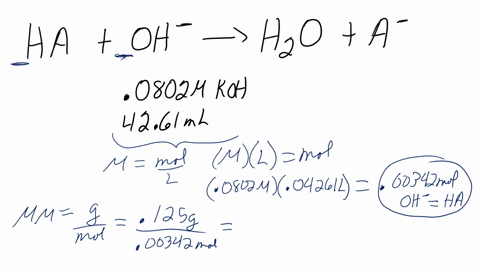 HA + OH⁻ → H₂O + A⁻
.0802M KOH
42.61mL
M = mol/L (M)(L) = mol
(.0802M)(.04261L) = .00342mol
OH⁻ = HA
MM = g/mol = .125g/.00342mol =